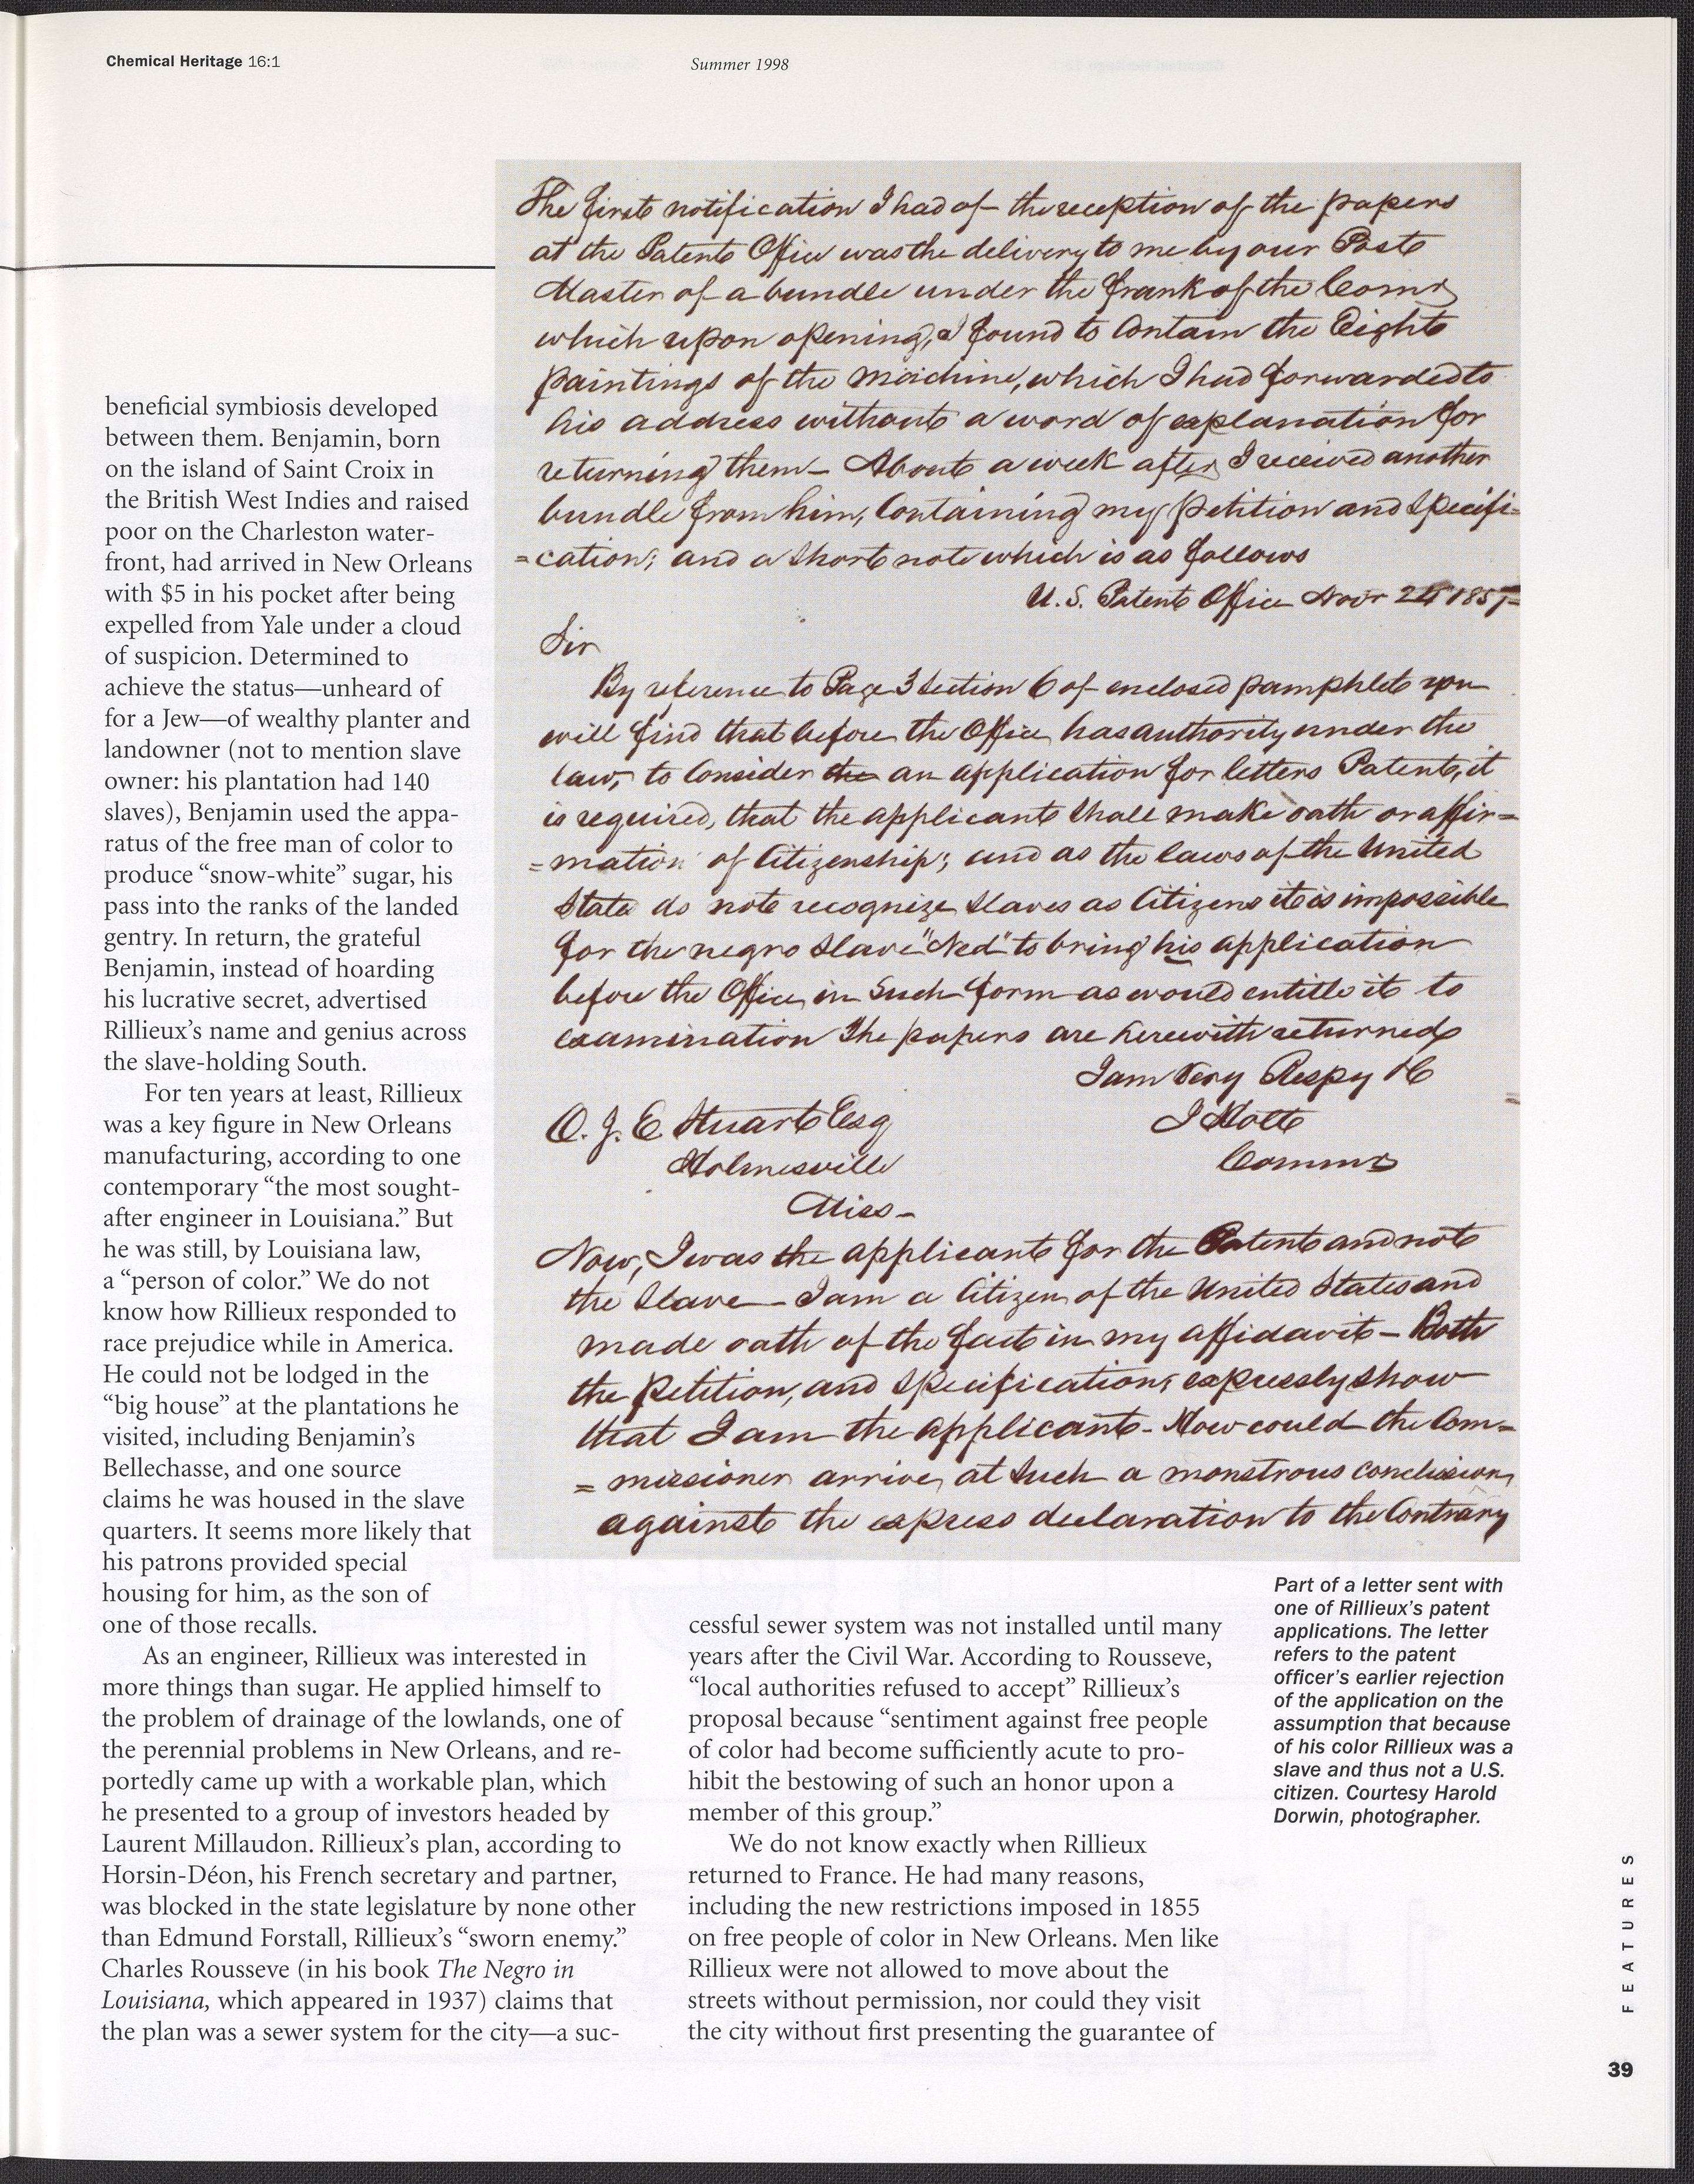 Chemical Heritage 16:1
Summer 1998
The first notification I had of the reception of the papers
at the Patent Office was the delivery to me by our Post
Master of a bundle under the frank of the Comr
which upon opening, I found to Contain the Eight
paintings of the machine, which I had forwarded to
his address without a word of explanation for
returning them – About a week after I received another
bundle from him, Containing my petition and Specifi=
=cation; and a Short note which is as follows
U.S. Patent Office Novr
Sir
By reference to Page 3 Section 6 of enclosed pamphlet you
will find that before the Office has authority under the
law, to Consider the an application for letters Patent, it
is required, that the applicant Shall make oath or affir=
=mation of Citizenship; and as the laws of the United
State do not recognize Slaves as Citizens it is impossible
for the negro Slave "Ned" to bring his application
before the Office in Such form as would entitle it to
examination The papers are herewith returned
I am Very Respy &c
O. J. E Stuart Esq
J Holt
Holmesville
Commr
Miss –
Now, I was the applicant for the Patent and not
the Slave – I am a Citizen of the United States and
made oath of the fact in my affidavit – Both
the Petition, and Specification, expressly show
that I am the applicant – How could the Com=
=missioner arrive at Such a monstrous conclusion,
against the express declaration to the Contrary
beneficial symbiosis developed
between them. Benjamin, born
on the island of Saint Croix in
the British West Indies and raised
poor on the Charleston water-
front, had arrived in New Orleans
with $5 in his pocket after being
expelled from Yale under a cloud
of suspicion. Determined to
achieve the status—unheard of
for a Jew—of wealthy planter and
landowner (not to mention slave
owner: his plantation had 140
slaves), Benjamin used the appa-
ratus of the free man of color to
produce “snow-white” sugar, his
pass into the ranks of the landed
gentry. In return, the grateful
Benjamin, instead of hoarding
his lucrative secret, advertised
Rillieux’s name and genius across
the slave-holding South.
For ten years at least, Rillieux
was a key figure in New Orleans
manufacturing, according to one
contemporary “the most sought-
after engineer in Louisiana.” But
he was still, by Louisiana law,
a “person of color.” We do not
know how Rillieux responded to
race prejudice while in America.
He could not be lodged in the
“big house” at the plantations he
visited, including Benjamin’s
Bellechasse, and one source
claims he was housed in the slave
quarters. It seems more likely that
his patrons provided special
housing for him, as the son of
one of those recalls.
As an engineer, Rillieux was interested in
more things than sugar. He applied himself to
the problem of drainage of the lowlands, one of
the perennial problems in New Orleans, and re-
portedly came up with a workable plan, which
he presented to a group of investors headed by
Laurent Millaudon. Rillieux’s plan, according to
Horsin-Déon, his French secretary and partner,
was blocked in the state legislature by none other
than Edmund Forstall, Rillieux’s “sworn enemy.”
Charles Rousseve (in his book The Negro in
Louisiana, which appeared in 1937) claims that
the plan was a sewer system for the city—a suc-
cessful sewer system was not installed until many
years after the Civil War. According to Rousseve,
“local authorities refused to accept” Rillieux’s
proposal because “sentiment against free people
of color had become sufficiently acute to pro-
hibit the bestowing of such an honor upon a
member of this group.”
We do not know exactly when Rillieux
returned to France. He had many reasons,
including the new restrictions imposed in 1855
on free people of color in New Orleans. Men like
Rillieux were not allowed to move about the
streets without permission, nor could they visit
the city without first presenting the guarantee of
Part of a letter sent with
one of Rillieux’s patent
applications. The letter
refers to the patent
officer’s earlier rejection
of the application on the
assumption that because
of his color Rillieux was a
slave and thus not a U.S.
citizen. Courtesy Harold
Dorwin, photographer.
FEATURES
39